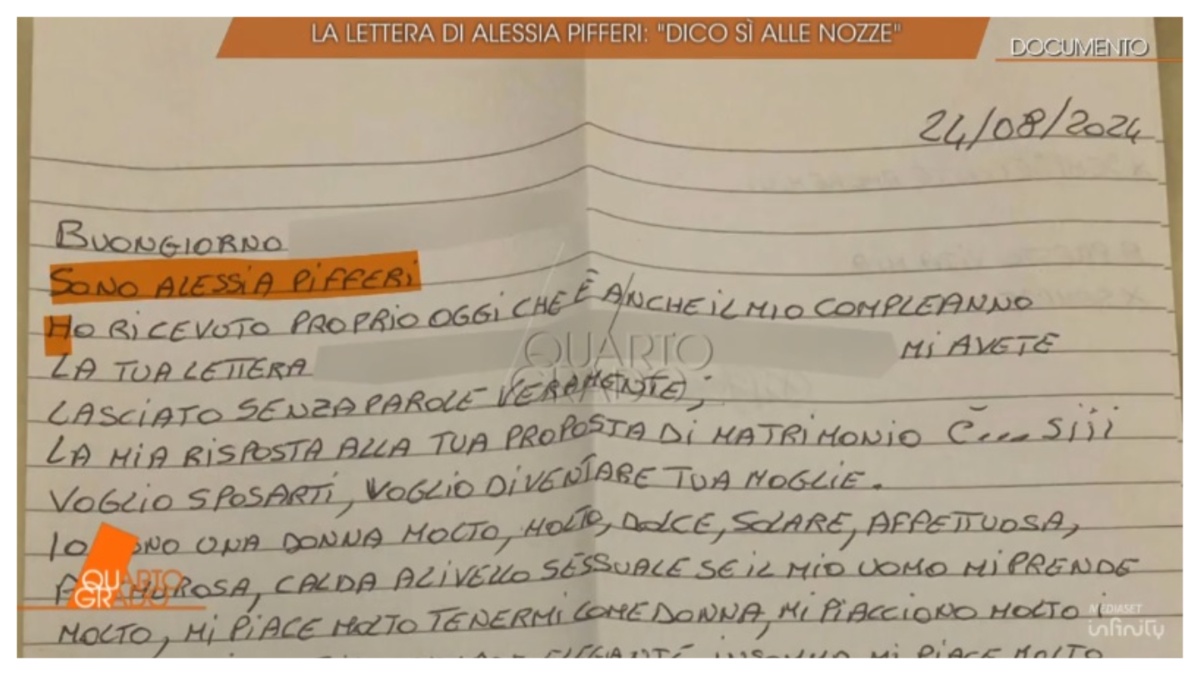 LA LETTERA DI ALESSIA PIFFERI: "DICO SÌ ALLE NOZZE"
DOCUMENTO
24/08/2024
BUONGIORNO
SONO ALESSIA PIFFERI
HO RICEVUTO PROPRIO OGGI CHE È ANCHE IL MIO COMPLEANNO
LA TUA LETTERA MI AVETE
LASCIATO SENZA PAROLE VERAMENTE;
LA MIA RISPOSTA ALLA TUA PROPOSTA DI MATRIMONIO È.... SIII
VOGLIO SPOSARTI, VOGLIO DIVENTARE TUA MOGLIE.
IO SONO UNA DONNA MOLTO, MOLTO, DOLCE, SOLARE, AFFETTUOSA,
CALDA A LIVELLO SESSUALE SE IL MIO UOMO MI PRENDE
MOLTO, MI PIACE MOLTO TENERMI COME DONNA, MI PIACCIONO MOLTO I
INSOMMA MI PIACE MOLTO
QUARTO
GRADO
QUARTO
GRADO
MEDIASET
infinity